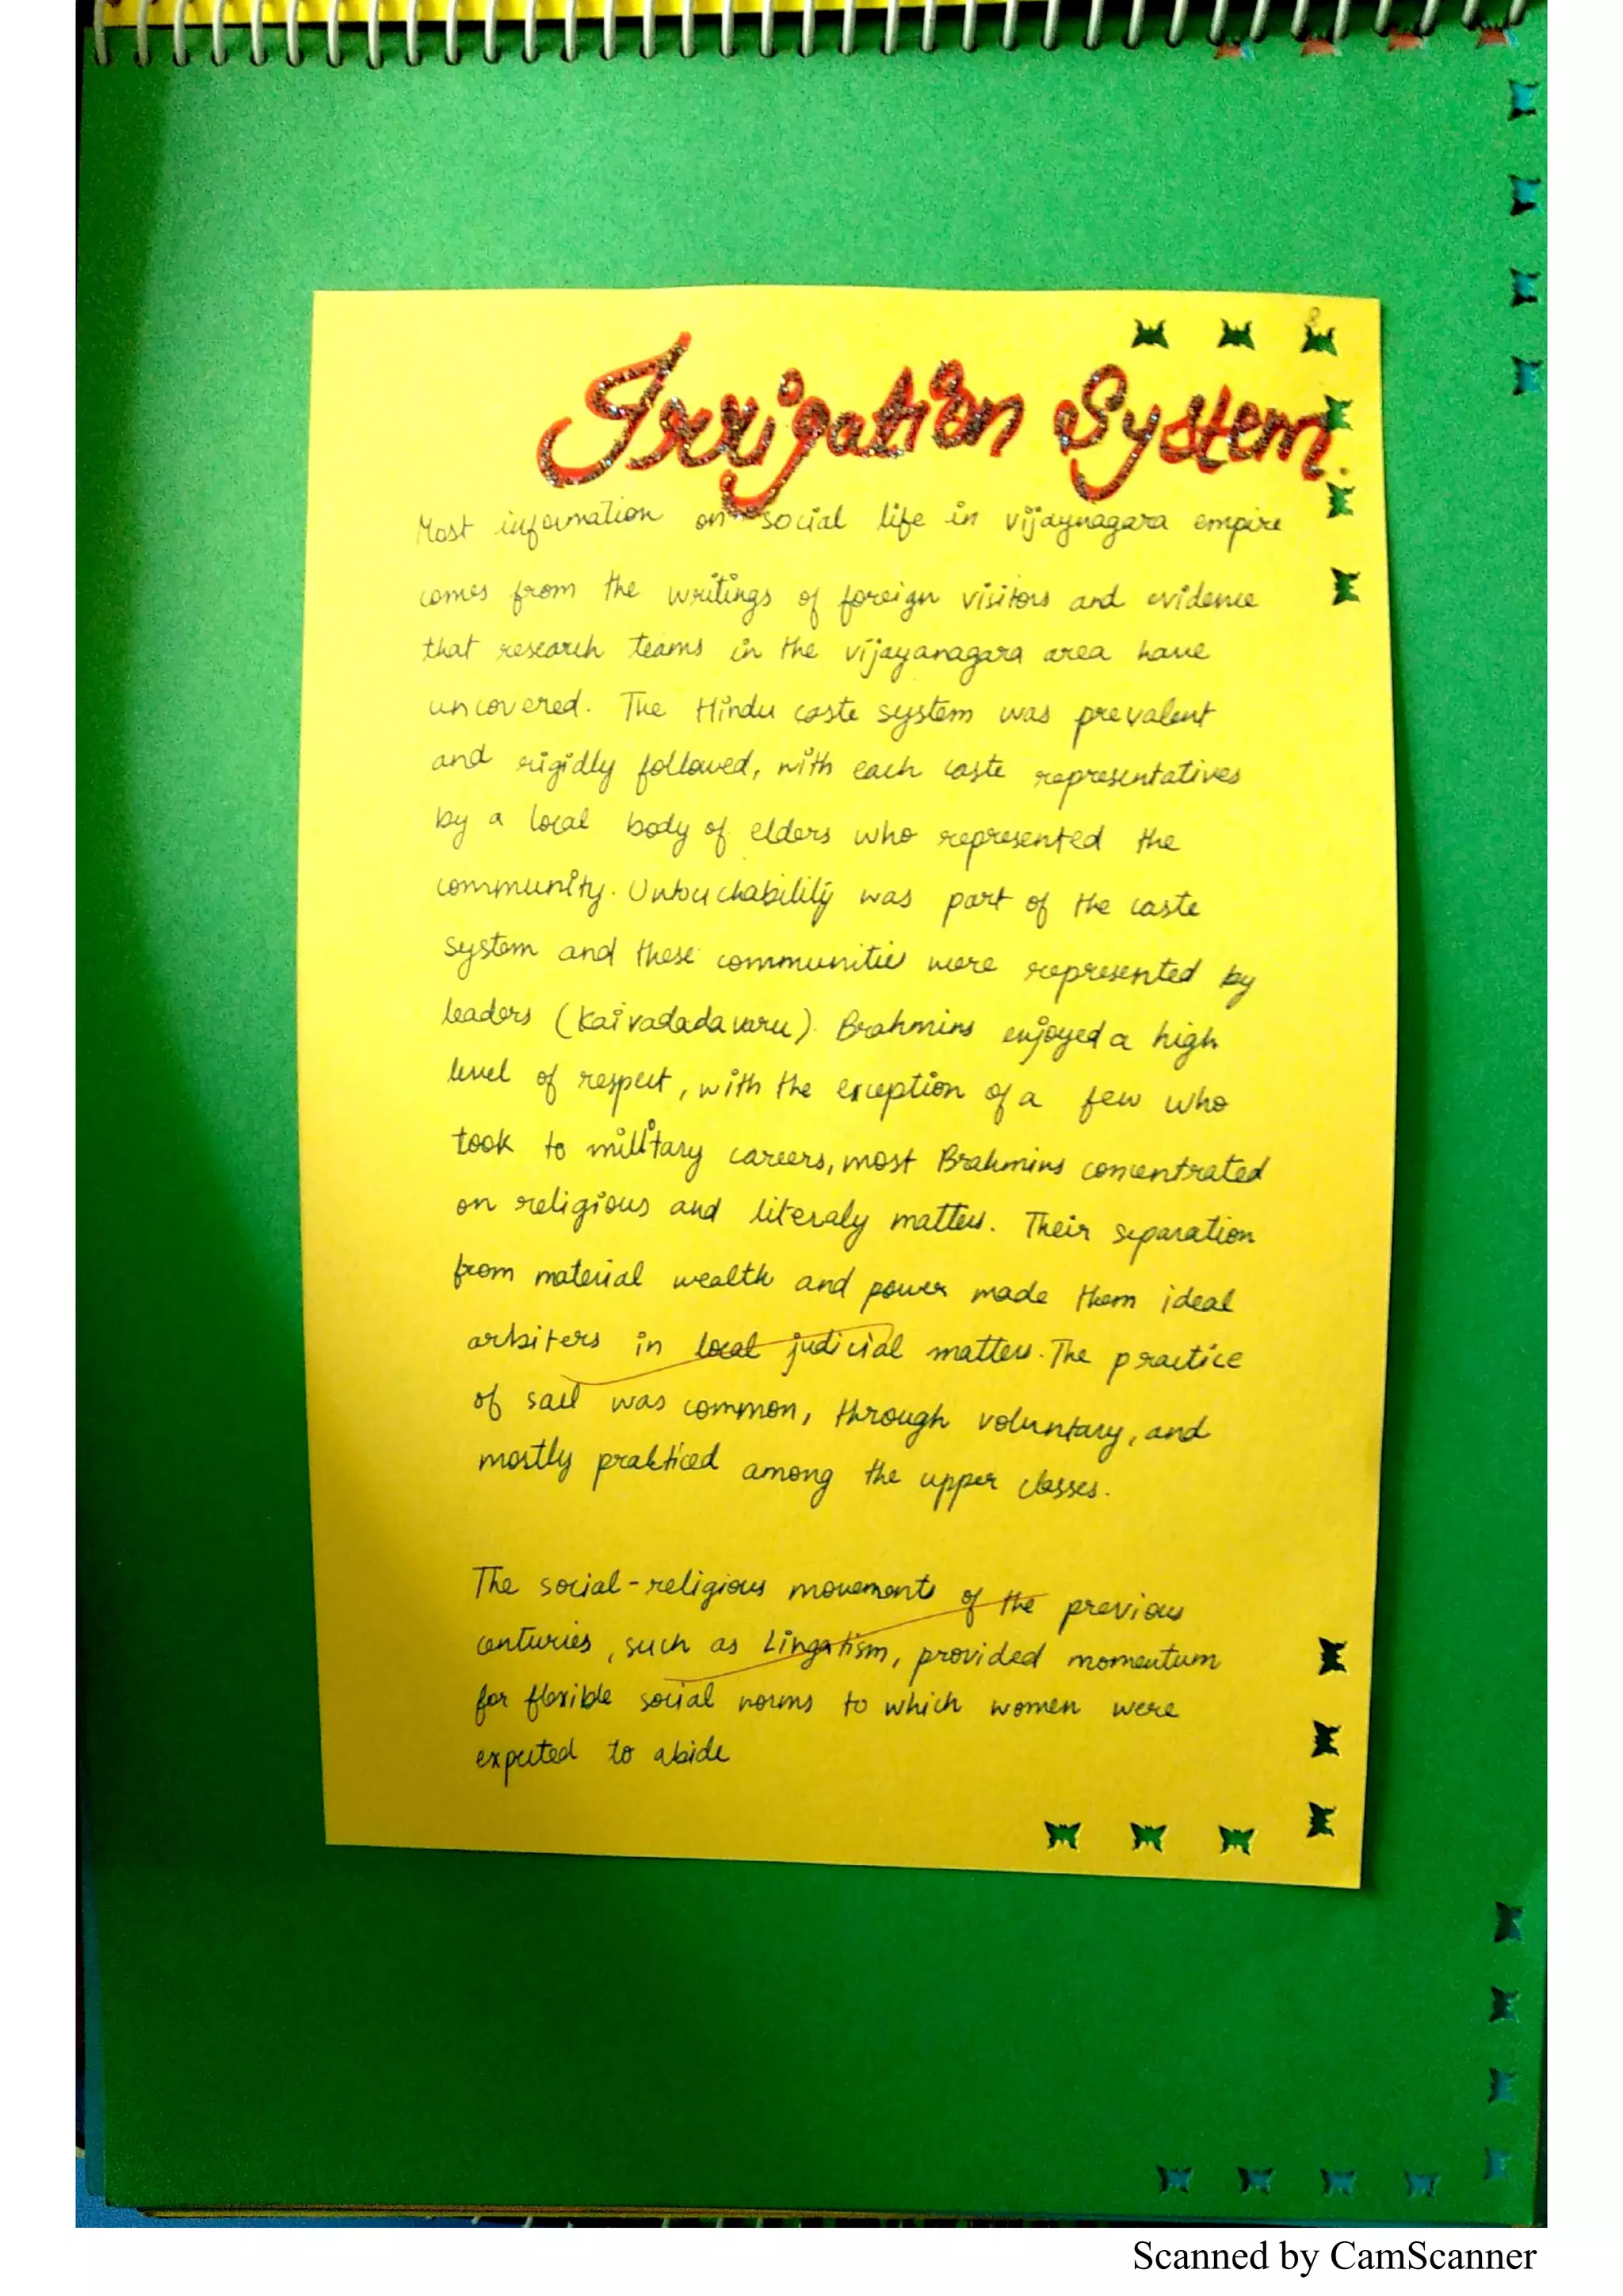 Irrigation System.
Most information on social life in vijaynagara empire
comes from the writings of foreign visitors and evidence
that research teams in the vijayanagara area have
uncovered. The Hindu caste system was prevalent
and rigidly followed, with each caste representatives
by a local body of elders who represented the
community. Untouchability was part of the caste
system and these communities were represented by
leaders (Kaivadadavaru). Brahmins enjoyed a high
level of respect, with the exception of a few who
took to military careers, most Brahmins concentrated
on religious and literaly matters. Their separation
from material wealth and power made them ideal
arbiters in local judicial matters. The practice
of sati was common, through voluntary, and
mostly prakticed among the upper classes.
The social-religious movements of the previous
centuries, such as Lingatism, provided momentum
for flexible social norms to which women were
expected to abide
Scanned by CamScanner